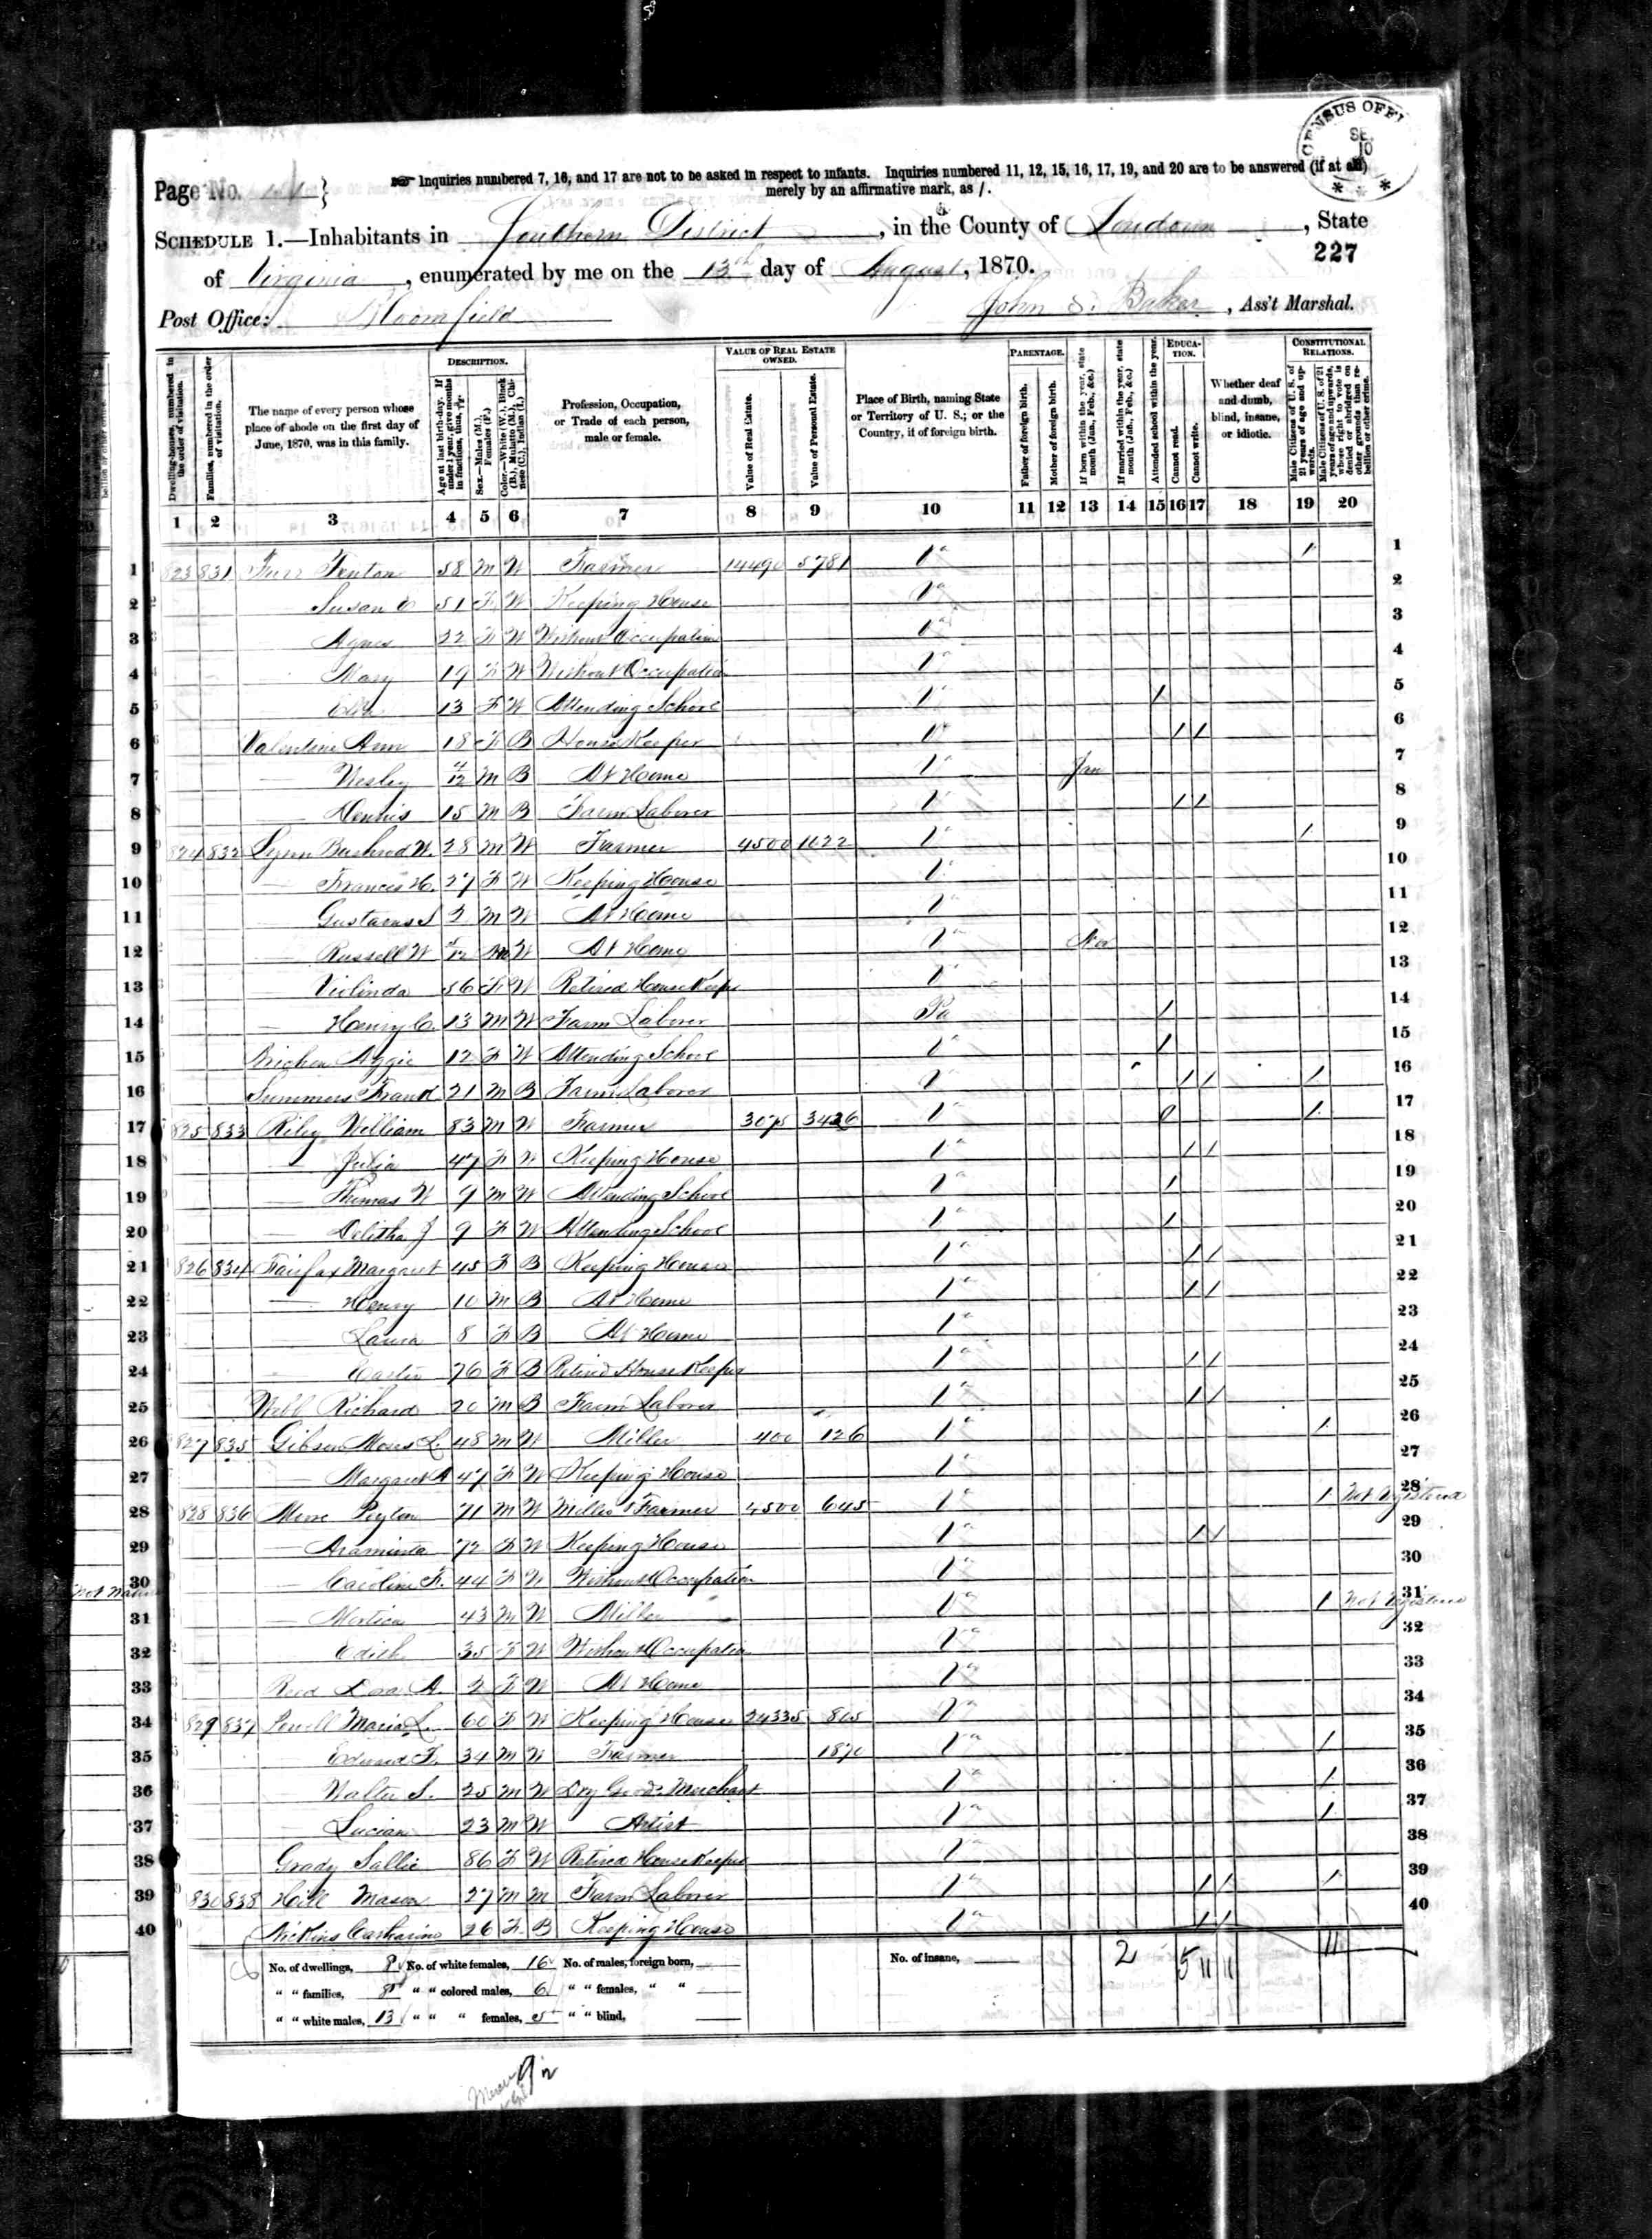 Page No.
Inquiries numbered 7, 16, and 17 are not to be asked in respect to infants. Inquiries numbered 11, 12, 15, 16, 17, 19, and 20 are to be answered (if at all)
merely by an affirmative mark, as /.
SCHEDULE 1.—Inhabitants in Southern District, in the County of Loudoun, State
227
of Virginia, enumerated by me on the 13th day of August, 1870.
Post Office: Bloomfield John S. Baker, Ass't Marshal.
Dwelling-houses, numbered in the order of visitation.
Families, numbered in the order of visitation.
The name of every person whose place of abode on the first day of June, 1870, was in this family.
DESCRIPTION.
Age at last birth-day. If under 1 year, give months in fractions, thus, 3/12.
Sex.—Males (M.), Females (F.)
Color.—White (W.), Black (B.), Mulatto (M.), Chinese (C.), Indian (I.)
Profession, Occupation, or Trade of each person, male or female.
VALUE OF REAL ESTATE OWNED.
Value of Real Estate.
Value of Personal Estate.
Place of Birth, naming State or Territory of U. S.; or the Country, if of foreign birth.
PARENTAGE.
Father of foreign birth.
Mother of foreign birth.
If born within the year, state month (Jan., Feb., &c.)
If married within the year, state month (Jan., Feb., &c.)
Attended school within the year.
EDUCATION.
Cannot read.
Cannot write.
Whether deaf and dumb, blind, insane, or idiotic.
CONSTITUTIONAL RELATIONS.
Male Citizens of U. S. of 21 years of age and upwards.
Male Citizens of U. S. of 21 years of age and upwards, whose right to vote is denied or abridged on other grounds than rebellion or other crime.
1 2 3 4 5 6 7 8 9 10 11 12 13 14 15 16 17 18 19 20
1 823 831 Furr Fenton 58 M W Farmer 14490 5781 Va / 1
2 Susan E 51 F W Keeping House Va 2
3 Agnes 22 F W Without Occupation Va 3
4 Mary 19 F W Without Occupation Va 4
5 13 F W Attending School Va / 5
6 Valentine Ann 18 F B House Keeper Va / / 6
7 Wesley M B At Home Va Jan 7
8 Dennis 15 M B Farm Laborer Va / / 8
9 824 832 Lynn Bushrod W. 28 M W Farmer 4500 1022 Va / 9
10 Frances H. 27 F W Keeping House Va 10
11 Gustavus S 2 M W At Home Va 11
12 Russell W M W At Home Va Nov 12
13 Violinda 56 F W Retired House Keeper Va 13
14 Henry C. 13 M W Farm Laborer Pa / 14
15 Aggie 12 F W Attending School Va / 15
16 Summers Frank 21 M B Farm Laborer Va / / / 16
17 825 833 Riley William 83 M W Farmer 3075 3426 Va / 17
18 Julia 47 F W Keeping House Va / / 18
19 Thomas W 9 M W Attending School Va / 19
20 Delitha J 9 F W Attending School Va / 20
21 826 834 Fairfax Margaret 45 F B Keeping House Va / / 21
22 Henry 10 M B At Home Va / / 22
23 Laura 8 F B At Home Va 23
24 76 F B Retired House Keeper Va / / 24
25 Webb Richard 20 M B Farm Laborer Va / / 25
26 827 835 Gibson Moses L. 48 M W Miller 400 126 Va / 26
27 Margaret A 47 F W Keeping House Va 27
28 828 836 Peyton 71 M W Miller & Farmer 4500 645 Va / Not Registered 28
29 Araminta 72 F W Keeping House Va / / 29
30 Caroline F. 44 F W Without Occupation Va 30
31 43 M W Miller Va / Not Registered 31
32 Edith 35 F W Without Occupation Va 32
33 Reed Dora A. 2 F W At Home Va 33
34 829 837 Powell Maria L. 60 F W Keeping House 24335 805 Va 34
35 Edward F. 34 M W Farmer 1870 Va / 35
36 Walter S. 25 M W Dry Goods Merchant Va / 36
37 Lucian 23 M W Artist Va / 37
38 Grady Sallie 86 F W Retired House Keeper Va 38
39 830 838 Hill Mason 27 M M Farm Laborer Va / / / 39
40 Nickins Catharine 26 F B Keeping House Va / / 40
No. of dwellings, 8 No. of white females, 16 No. of males, foreign born, No. of insane, 2 5 11 11 11
" " families, 8 " " colored males, 6 " " females, " "
" " white males, 13 " " " females, 5 " " blind,